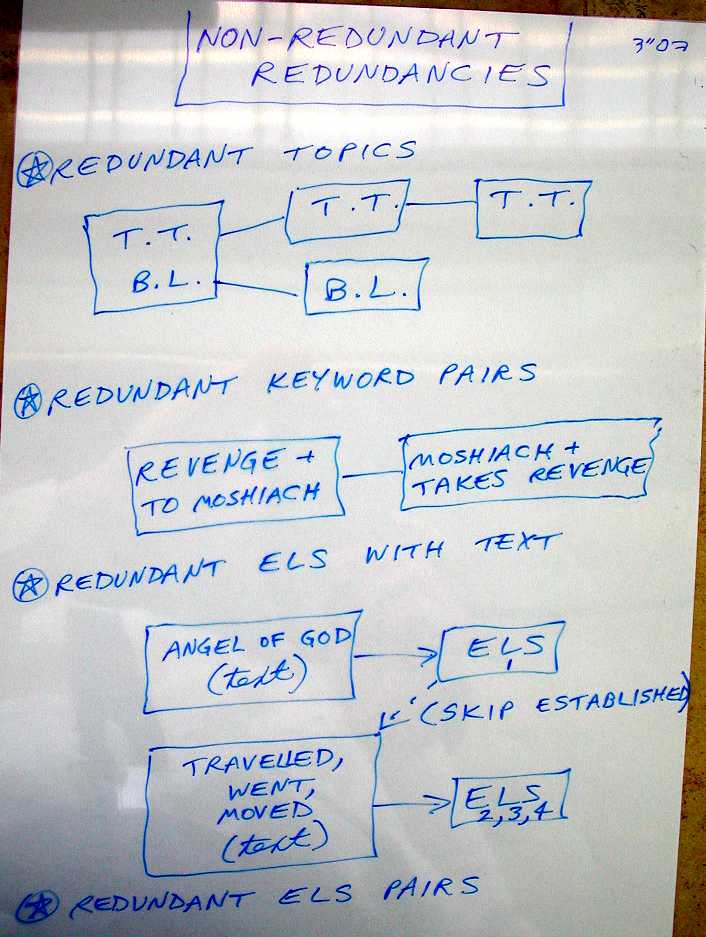 NON-REDUNDANT
REDUNDANCIES
3"07
REDUNDANT TOPICS
T.T.
B.L.
T.T.
T.T.
B.L.
REDUNDANT KEYWORD PAIRS
REVENGE +
TO MOSHIACH
MOSHIACH +
TAKES REVENGE
REDUNDANT ELS WITH TEXT
ANGEL OF GOD
(text)
ELS
1
(SKIP ESTABLISHED)
TRAVELLED,
WENT,
MOVED
(text)
ELS
2,3,4
REDUNDANT ELS PAIRS